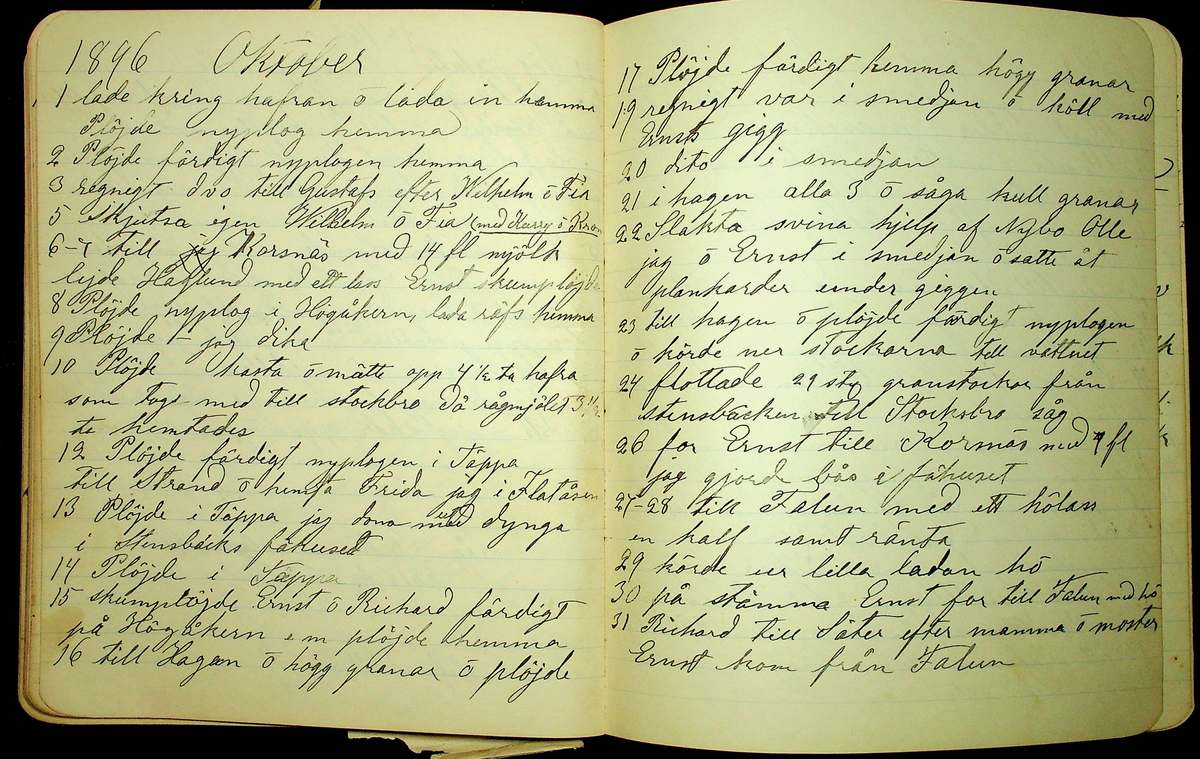 1896 Oktober
1 lade kring hafran ō lada in hamma
Plöjde nyplog hemma
2 Plöjde färdigt nyplogen hemma
3 regnigt dvo till Gustafs efter Wilhelm ō Fia
5 Skjutsa igen Wilhelm ō Fia (med Harry ō
6-7 till Korsnäs med 14 fl mjölk
lejde Haglund med ett lass Ernst skumplöjde
8 Plöjde nyplog i Högåkern, lada räfs hemma
9 Plöjde – jag dika
10 Plöjde kasta ō mätte opp 4 ½ ta hafra
som togs med till stockbro då rågmjölet 3 ½
ta hemtades
12 Plöjde färdigt nyplogen i Täppa
till Strand ō hemta Frida jag i Flatåsen
13 Plöjde i Täppa jag dona med dynga
i Stensbäcks fähuset
14 Plöjde i Täppa
15 skumplöjde Ernst ō Richard färdigt
på Högåkern e m plöjde hemma
16 till Hagan ō högg granar ō plöjde
17 Plöjde färdigt hemma högg granar
19 regnigt var i smedjan ō höll med
Ernsts gigg
20 dito i smedjan
21 i hagen alla 3 ō såga kull granar
22 Slakta svina hjelp af Nybo Olle
jag ō Ernst i smedjan ō satte åt
plankarder under giggen
23 till hagen ō plöjde färdigt nyplogen
ō körde ner stockarna till vattnet
24 flottade 29 sty granstockar från
stensbäcken till Stocksbro såg
26 for Ernst till Korsnäs med 9 fl
jag gjord bås i fähuset
27-28 till Falun med ett hölass
en half samt ränta
29 körde ur lilla ladan hö
30 på stämma Ernst for till Falun med hö
31 Richard till Säter efter mamma ō moster
Ernst kom från Falun